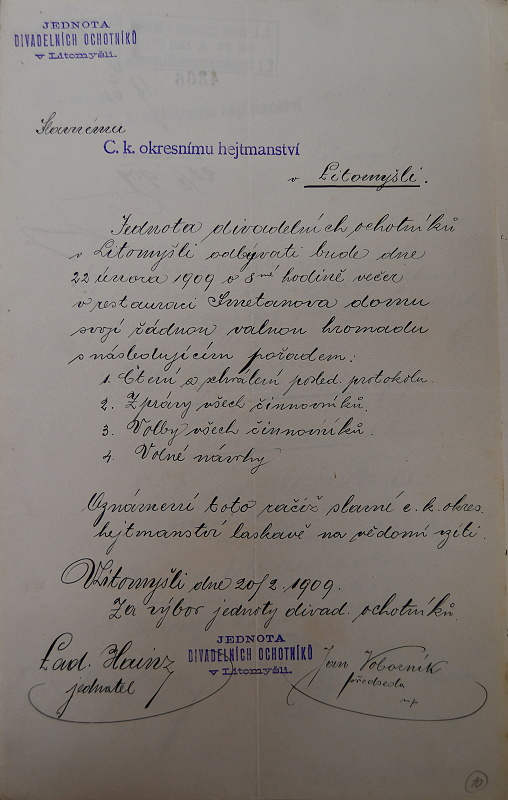 JEDNOTA
DIVADELNÍCH OCHOTNÍKŮ
v Litomyšli.
Slavnému
C. k. okresnímu hejtmanství
v Litomyšli.
Jednota divadelních ochotníků
v Litomyšli odbývati bude dne
22 února 1909 o 8mé hodině večer
v restauraci Smetanova domu
svoji řádnou valnou hromadu
s následujícím pořadem:
1. Čtení a schválení posled. protokolu.
2. Zprávy všech činnovníků.
3. Volby všech činnovníků.
4. Volné návrhy
Oznámení toto račiž slavné c. k. okres.
hejtmanství laskavě na vědomí vzíti.
V Litomyšli dne 20/2. 1909.
Za výbor jednoty divad. ochotníků.
JEDNOTA
DIVADELNÍCH OCHOTNÍKŮ
v Litomyšli.
Lad. Hainz
jednatel
Jan Voborník
předseda